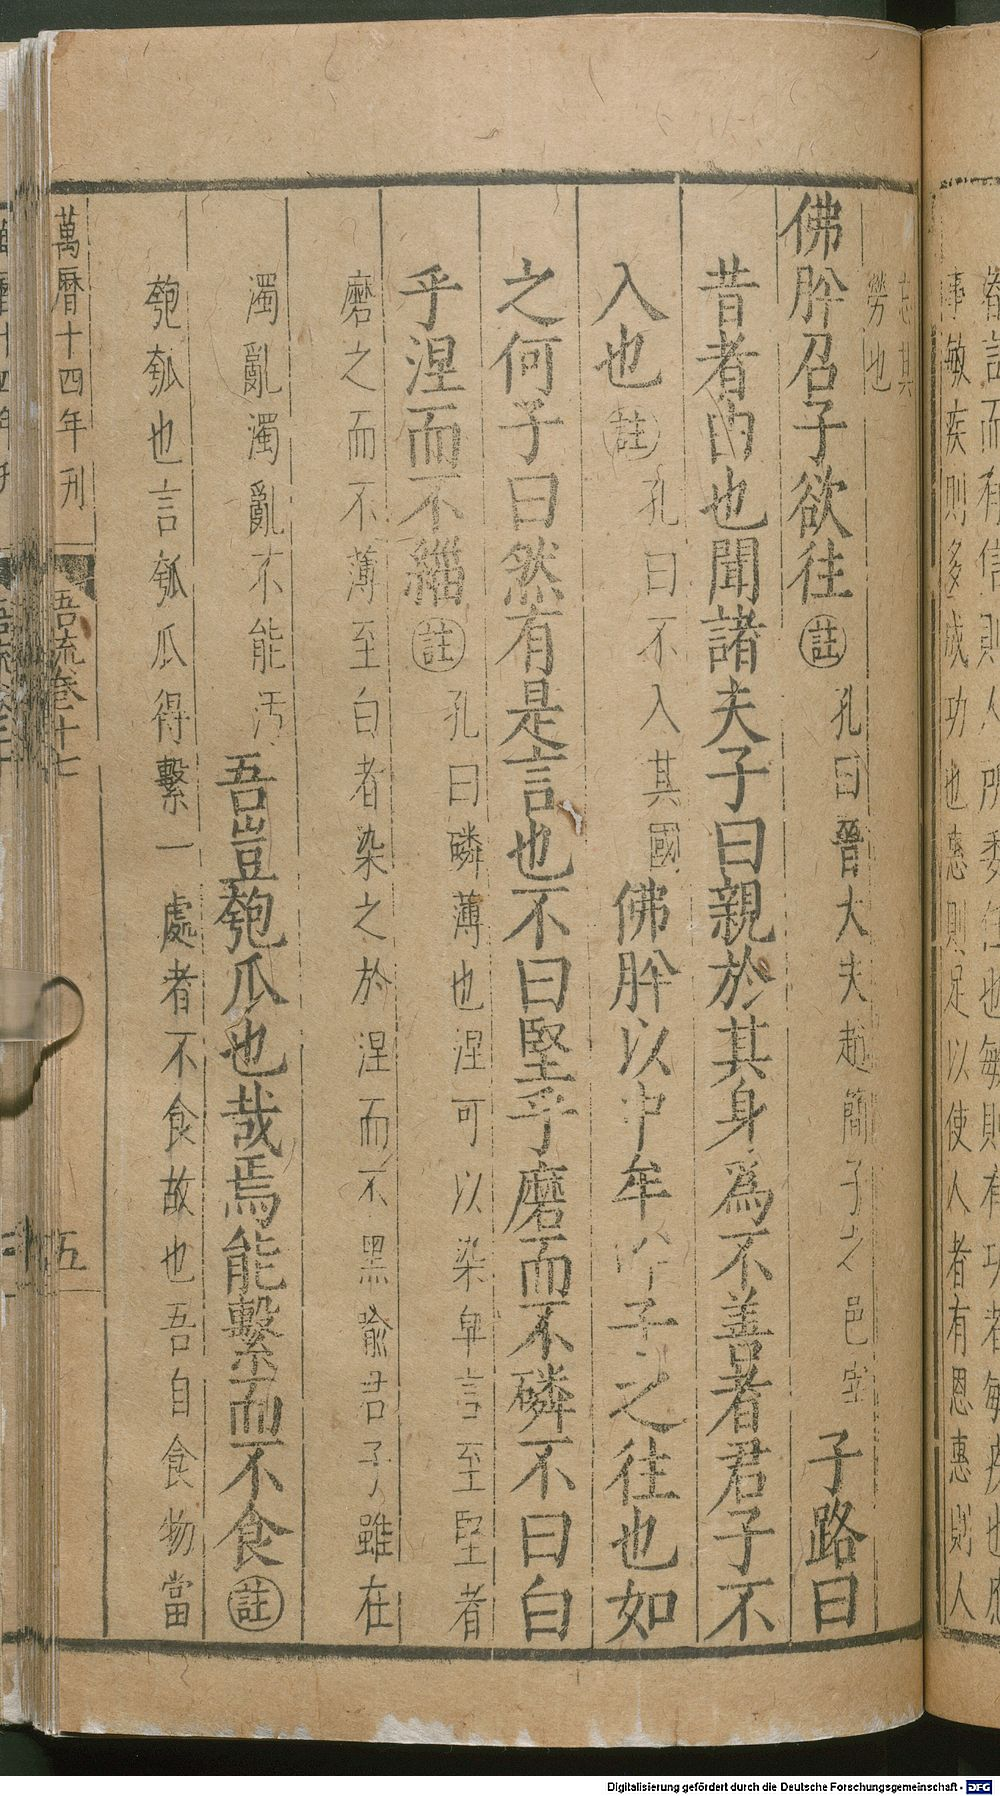 眷言而有信則人所委任也敏則有功者敏疾也應
事敏疾則多成功也惠則足以使人者有恩惠則人
忘其
勞也
佛肸召子欲往註孔曰晉大夫趙簡子之邑宰子路曰
昔者由也聞諸夫子曰親於其身爲不善者君子不
入也註孔曰不入其國佛肸以中牟畔子之往也如
之何子曰然有是言也不曰堅乎磨而不磷不曰白
乎涅而不緇註孔曰磷薄也涅可以染皁言至堅者
磨之而不薄至白者染之於涅而不黑喻君子雖在
濁亂濁亂不能汚吾豈匏瓜也哉焉能繫而不食註
匏瓠也言瓠瓜得繫一處者不食故也吾自食物當
萬曆十四年刊
吾疏卷十七
五
Digitalisierung gefördert durch die Deutsche Forschungsgemeinschaft - DFG